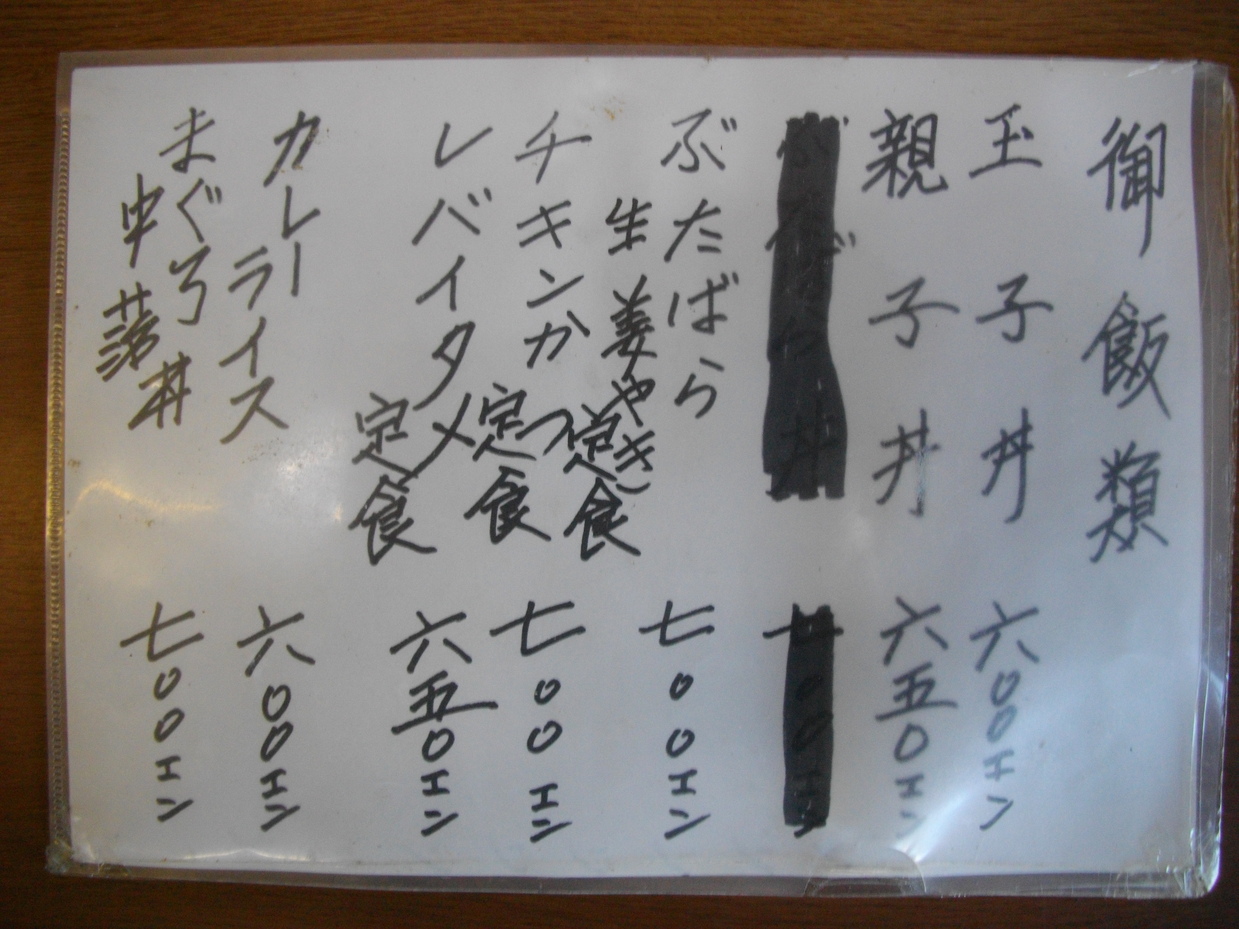 御飯類
玉子丼 六〇〇エン
親子丼 六五〇エン
ぶたばら生姜やき定食 七〇〇エン
チキンかつ定食 七〇〇エン
レバイタメ定食 六五〇エン
カレーライス 六〇〇エン
まぐろ中落丼 七〇〇エン